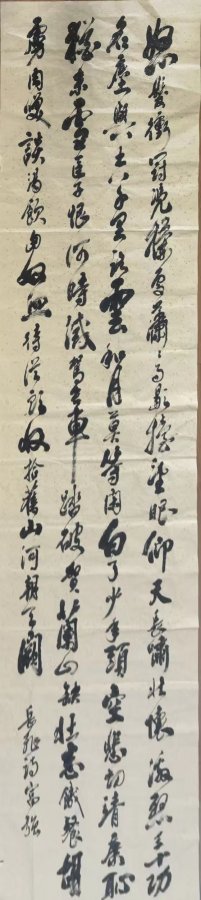 怒髮衝冠凭欄處蕭〻雨歇擡望眼仰天長嘯壯懷激烈三十功
名塵與土八千里路雲和月莫等閑白了少年頭空悲切靖康恥
猶未雪臣子恨何時滅駕長車踏破賀蘭山缺壯志飢餐胡
虜肉笑談渴飲匈奴血待從頭收拾舊山河朝天闕
岳飛詩